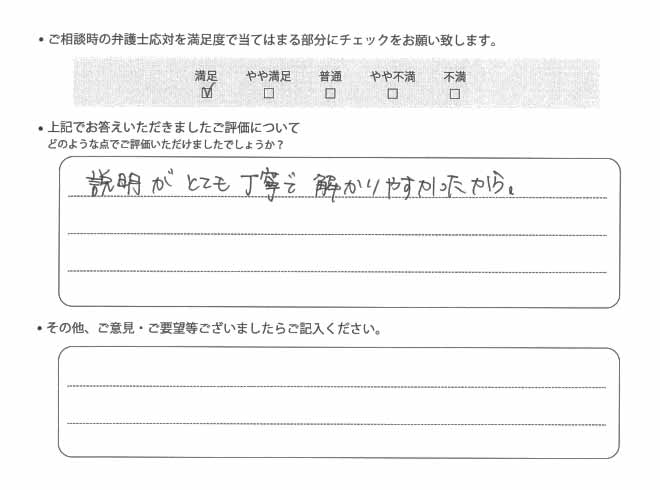 ・ご相談時の弁護士応対を満足度で当てはまる部分にチェックをお願い致します。
満足 やや満足 普通 やや不満 不満
☑ □ □ □ □
・上記でお答えいただきましたご評価について
どのような点でご評価いただけましたでしょうか？
説明がとても丁寧で解かりやすかったから。
・その他、ご意見・ご要望等ございましたらご記入ください。